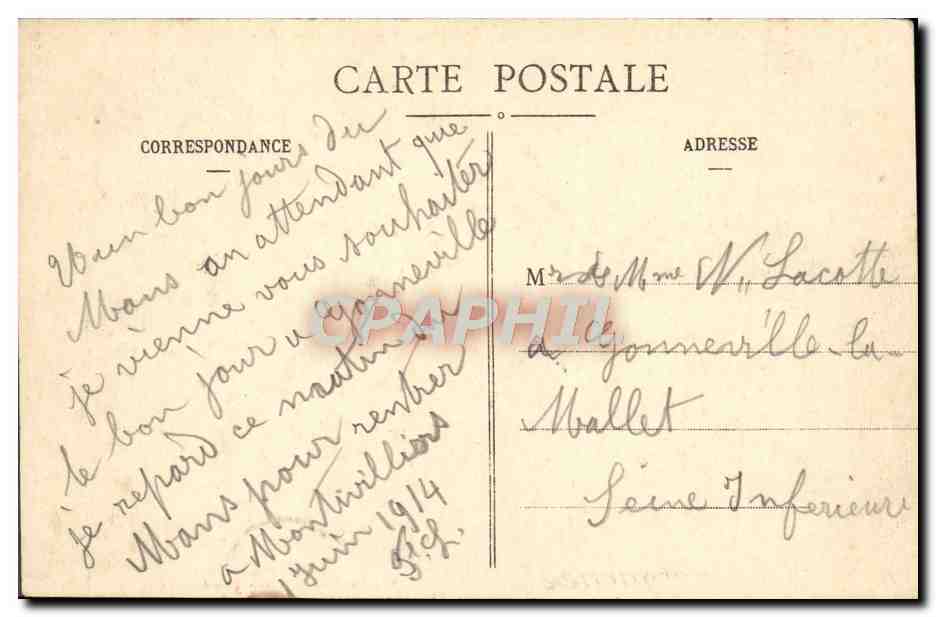 CARTE POSTALE
CORRESPONDANCE
Un bon jours du
Mans an attendant que
je vienne vous souhaiter
le bon jour a Gonneville
je repard ce matin du
Mans pour rentrer
a Montivilliers
1 Juin 1914
ADRESSE
Mr et Mme N. Lacotte
a Gonneville-la-
Mallet
Seine Inferieure
CPAPHIL